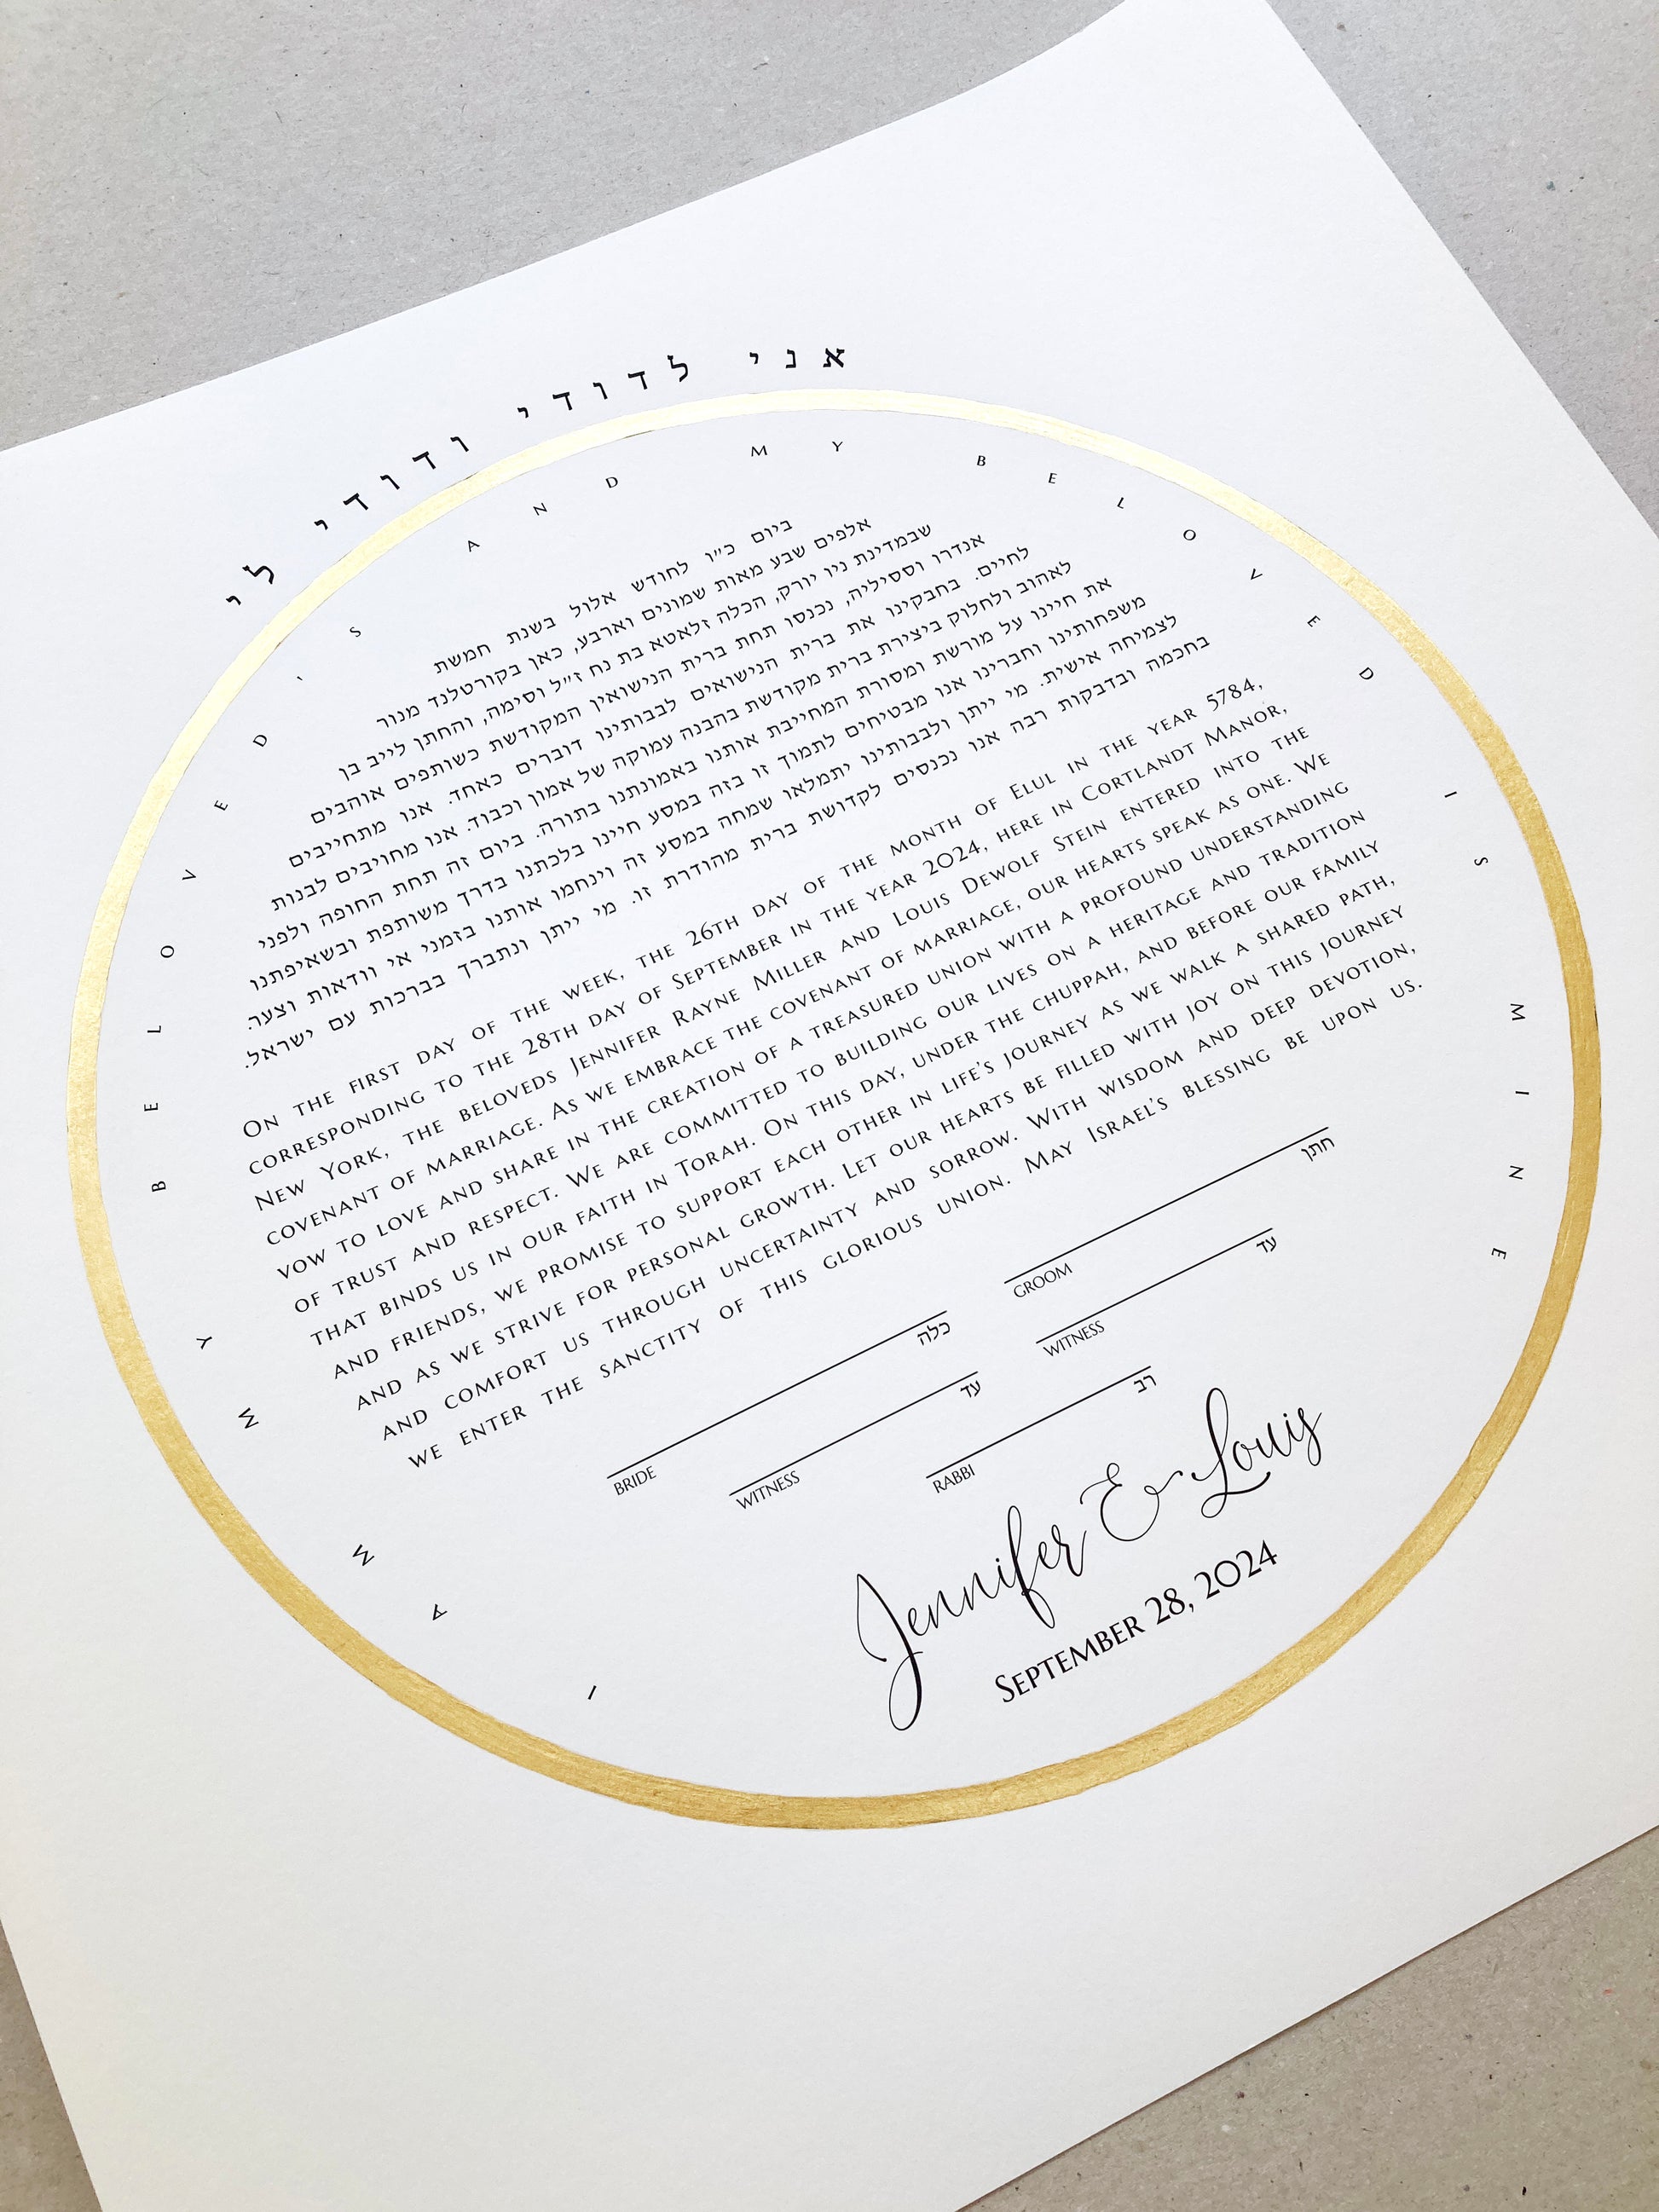 אני לדודי ודודי לי
I AM MY BELOVED'S AND MY BELOVED IS MINE
ביום כ״ו לחודש אלול בשנת חמשת
אלפים שבע מאות שמונים וארבע, כאן בקורטלנד מנור
שבמדינת ניו יורק, הכלה זלאטא בת נח ז״ל וסימה, והחתן לייב בן
אנדרו וססיליה, נכנסו תחת ברית הנישואין המקודשת כשותפים אוהבים
לחיים. בחבקינו את ברית הנישואים לבבותינו דוברים כאחד. אנו מתחייבים
לאהוב ולחלוק ביצירת ברית מקודשת בהבנה עמוקה של אמון וכבוד. אנו מחויבים לבנות
את חיינו על מורשת ומסורת המחייבת אותנו באמונתנו בתורה. ביום זה תחת החופה ולפני
משפחותינו וחברינו אנו מבטיחים לתמוך זו בזה במסע חיינו בלכתנו בדרך משותפת ובשאיפתנו
לצמיחה אישית. מי ייתן ולבבותינו יתמלאו שמחה במסע זה וינחמו אותנו בזמני אי וודאות וצער.
בחכמה ובדבקות רבה אנו נכנסים לקדושת ברית מהודרת זו. מי ייתן ונתברך בברכות עם ישראל.
On the first day of the week, the 26th day of the month of Elul in the year 5784,
corresponding to the 28th day of September in the year 2024, here in Cortlandt Manor,
New York, the beloveds Jennifer Rayne Miller and Louis Dewolf Stein entered into the
covenant of marriage. As we embrace the covenant of marriage, our hearts speak as one. We
vow to love and share in the creation of a treasured union with a profound understanding
of trust and respect. We are committed to building our lives on a heritage and tradition
that binds us in our faith in Torah. On this day, under the chuppah, and before our family
and friends, we promise to support each other in life's journey as we walk a shared path,
and as we strive for personal growth. Let our hearts be filled with joy on this journey
and comfort us through uncertainty and sorrow. With wisdom and deep devotion,
we enter the sanctity of this glorious union. May Israel's blessing be upon us.
BRIDE כלה
GROOM חתן
WITNESS עד
WITNESS עד
RABBI רב
Jennifer & Louis
September 28, 2024